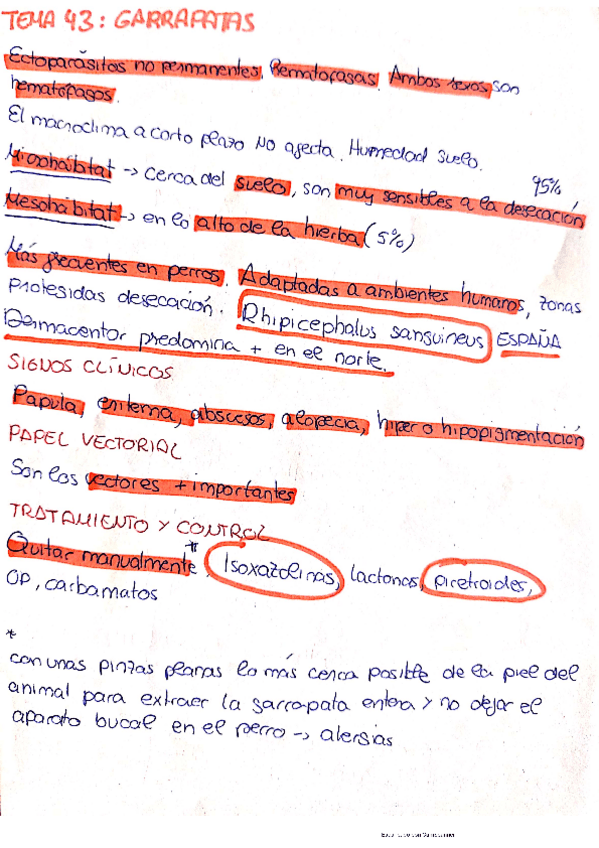 TEMA 43: GARRAPATAS
Ectoparásitos no permanentes. Hematofagas. Ambos sexos son
hematófagos.
El macroclima a corto plazo NO afecta. Humedad suelo.
95%
Microhábitat -> cerca del suelo, son muy sensibles a la desecación
Mesohábitat -> en lo alto de la hierba (5%)
Más frecuentes en perros. Adaptadas a ambientes humanos, zonas
protegidas desecación. Rhipicephalus sanguineus ESPAÑA
Dermacentor predomina + en el norte.
SIGNOS CLÍNICOS
Papula, eritema, abscesos, alopecia, hiper o hipopigmentación
PAPEL VECTORIAL
Son los vectores + importantes
TRATAMIENTO Y CONTROL
Quitar manualmente*. Isoxazolinas, lactonas, piretroides,
OP, carbamatos
*
con unas pinzas planas lo más cerca posible de la piel del
animal para extraer la garrapata entera y no dejar el
aparato bucal en el perro -> alergias